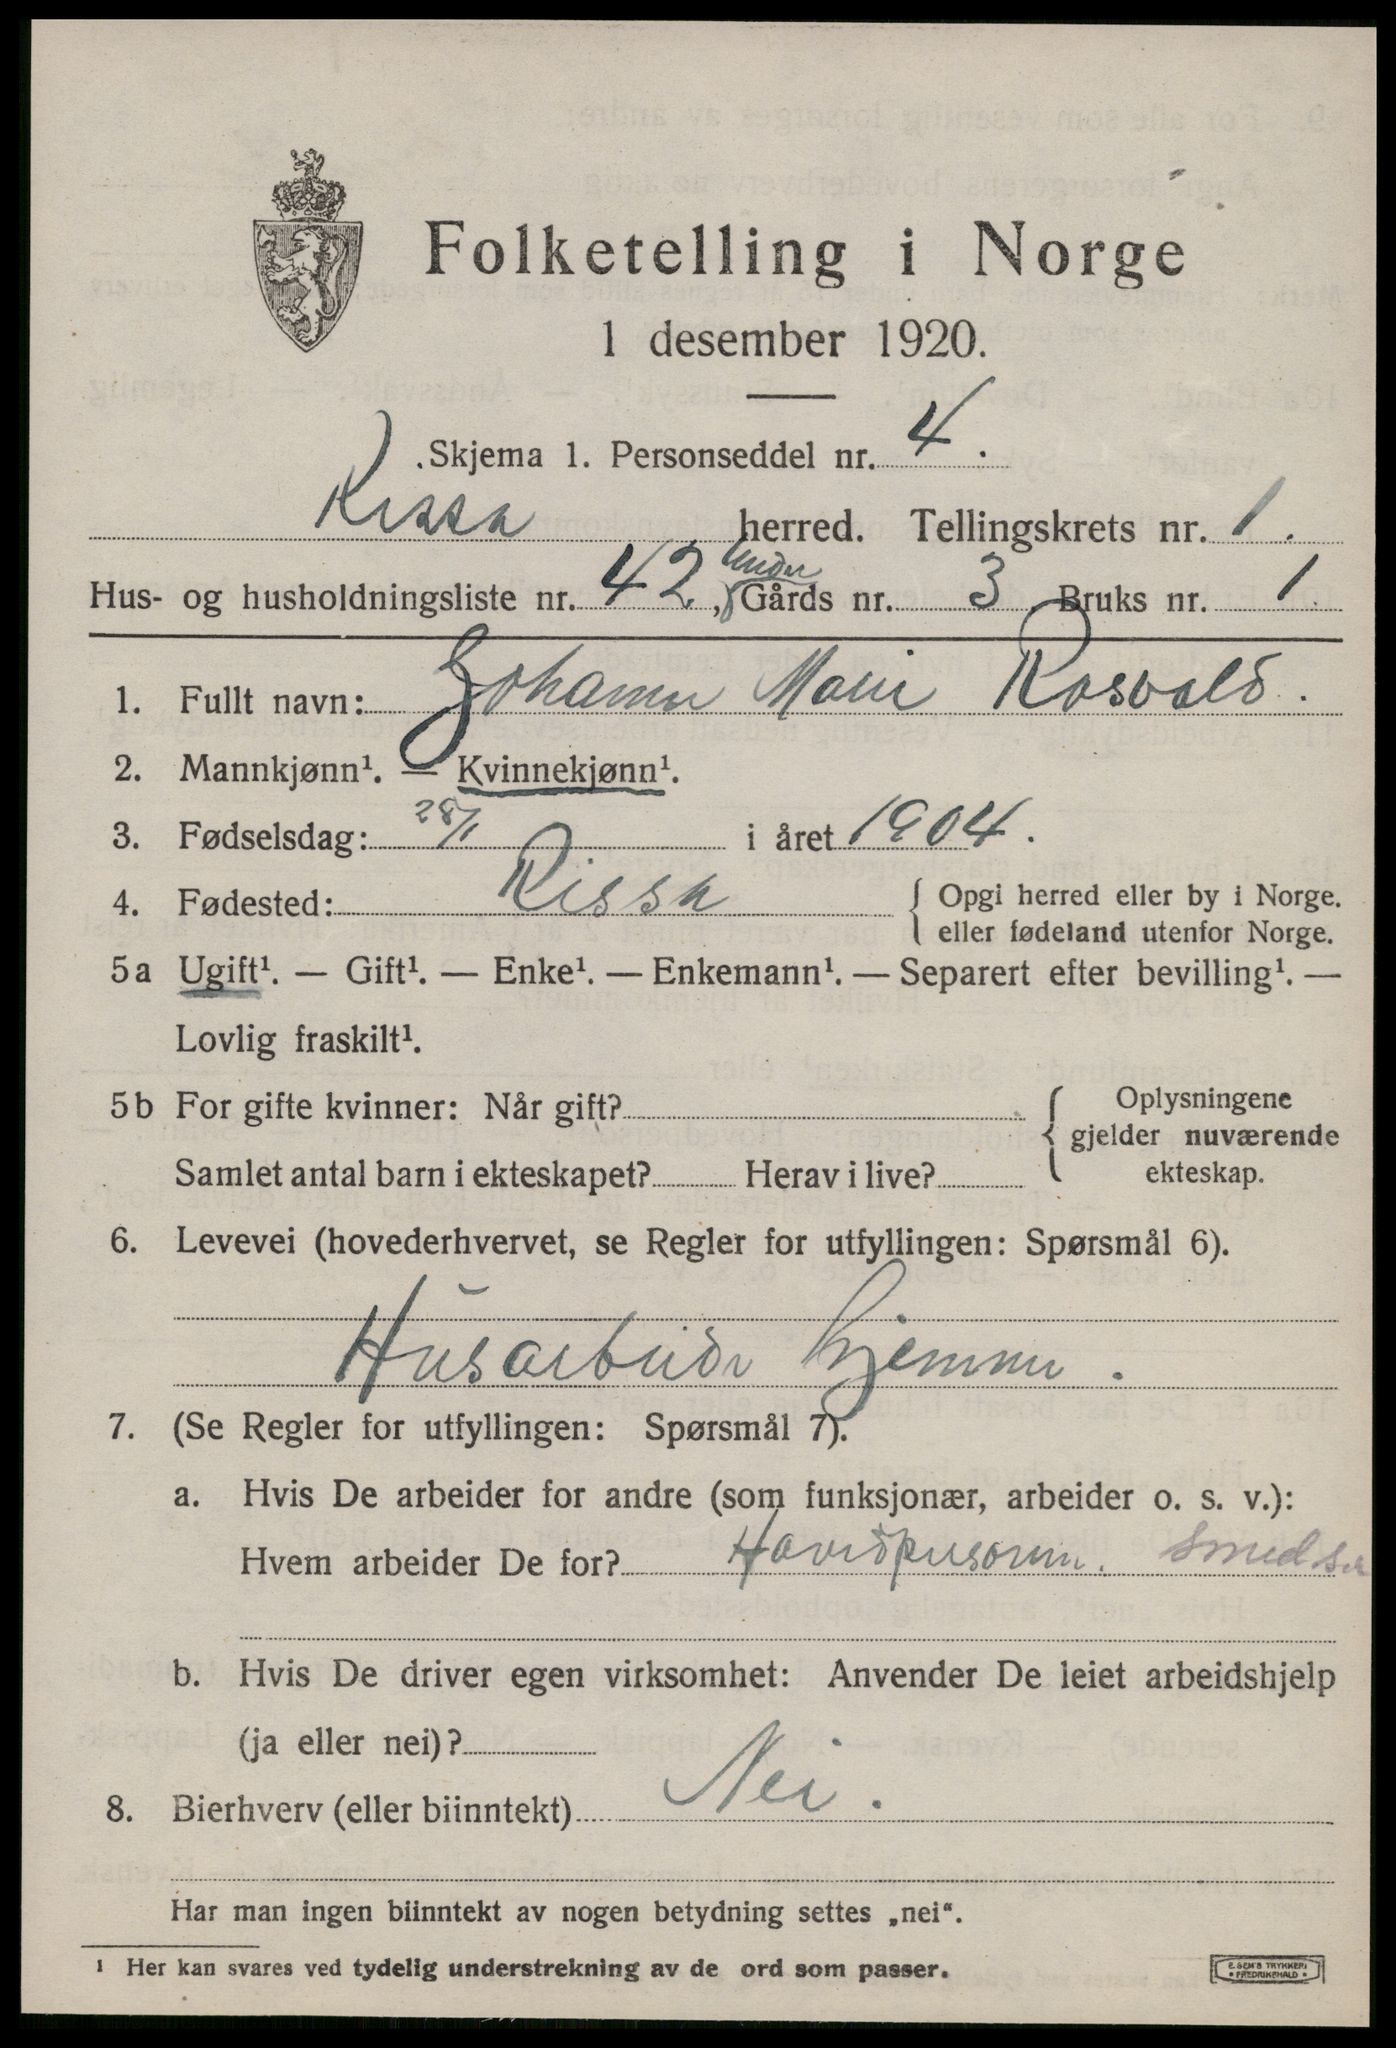 Folketelling i Norge
1 desember 1920.
Skjema 1. Personseddel nr. 4.
Rissa herred. Tellingskrets nr. 1.
Under
Hus- og husholdningsliste nr. 42, Gårds nr. 3 Bruks nr. 1
1. Fullt navn: Johanne Marie Rosvold.
2. Mannkjønn¹. — Kvinnekjønn¹.
3. Fødselsdag: 28/1 i året 1904.
4. Fødested: Rissa { Opgi herred eller by i Norge.
eller fødeland utenfor Norge.
5a Ugift¹. — Gift¹. — Enke¹. — Enkemann¹. — Separert efter bevilling¹. —
Lovlig fraskilt¹.
5b For gifte kvinner: Når gift? { Oplysningene
gjelder nuværende
Samlet antal barn i ekteskapet? Herav i live? ekteskap.
6. Levevei (hovederhvervet, se Regler for utfyllingen: Spørsmål 6).
Husarbeide hjemme.
7. (Se Regler for utfyllingen: Spørsmål 7).
a. Hvis De arbeider for andre (som funksjonær, arbeider o. s. v.):
Hvem arbeider De for? Hovedpersonen.
b. Hvis De driver egen virksomhet: Anvender De leiet arbeidshjelp
(ja eller nei)?
8. Bierhverv (eller biinntekt) Nei.
Har man ingen biinntekt av nogen betydning settes „nei“.
¹ Her kan svares ved tydelig understrekning av de ord som passer.
E. SEM'S TRYKKERI
FREDRIKSHALD